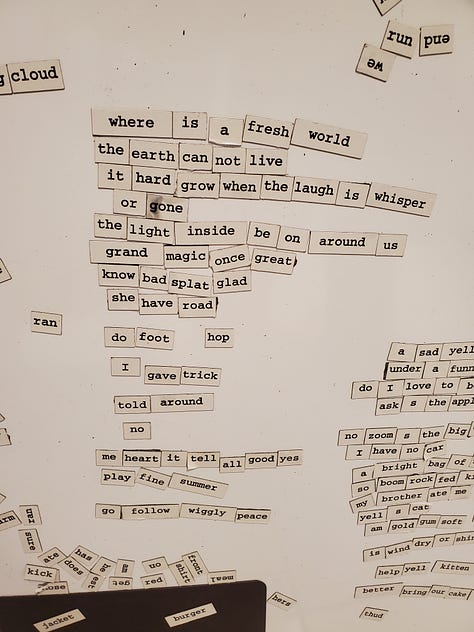 run end
we
cloud
where is a fresh world
the earth can not live
it hard grow when the laugh is whisper
or gone
the light inside be on around us
grand magic once great
know bad splat glad
she have road
ran
do foot hop
I gave trick
told around
no
me heart it tell all good yes
play fine summer
go follow wiggly peace
a sad yell
under a funn
do I love to b
ask s the appl
no zoom s the big
I have no car
a bright bag of
so boom rock fed ki
my brother ate me
yell s cat
am gold gum soft
is wind dry or shir
help yell kitten
better bring our cake
thud
ran
arm
sure
ate
does
has
be
eat
all
get
no
red
shirt
front
meat
kick
nose
hers
jacket
burger